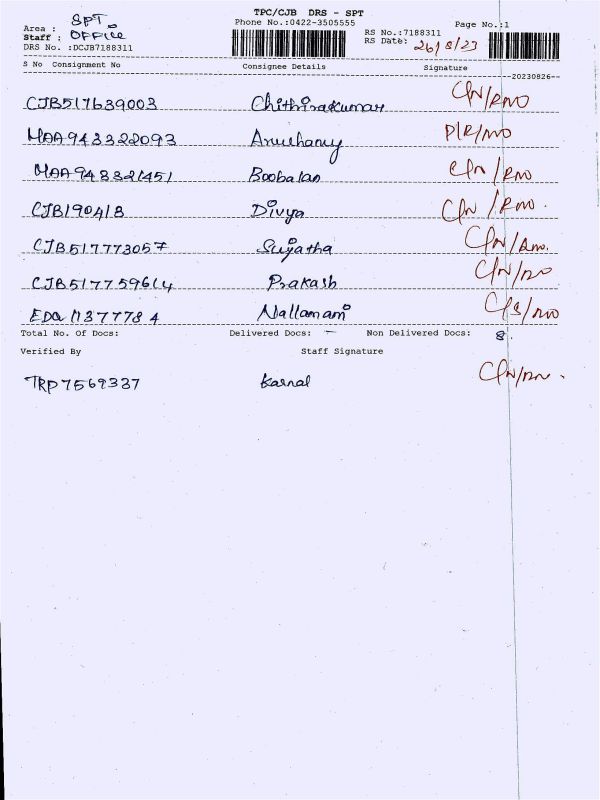 TPC/CJB DRS - SPT
Area : SPT
Phone No.:0422-3505555
Page No.:1
Staff : OFFice
RS No.:7188311
DRS No. :DCJB7188311
RS Date: 26/8/23
S No Consignment No Consignee Details Signature
--20230826--
CJB517639003 Chithirakumar C/N/RNO
MAA943322093 P/R/NO
MAA943321451 Boobalan C/N/RNO
CJB190418 Divya C/N/RNO.
CJB517773057 Sujatha C/N/RNO.
CJB517759614 Prakash C/N/NO
EDQ113777784 Nallamani C/S/NO
Total No. Of Docs: Delivered Docs: - Non Delivered Docs: 8.
Verified By Staff Signature
TRP7569337 Karnal C/N/RN.